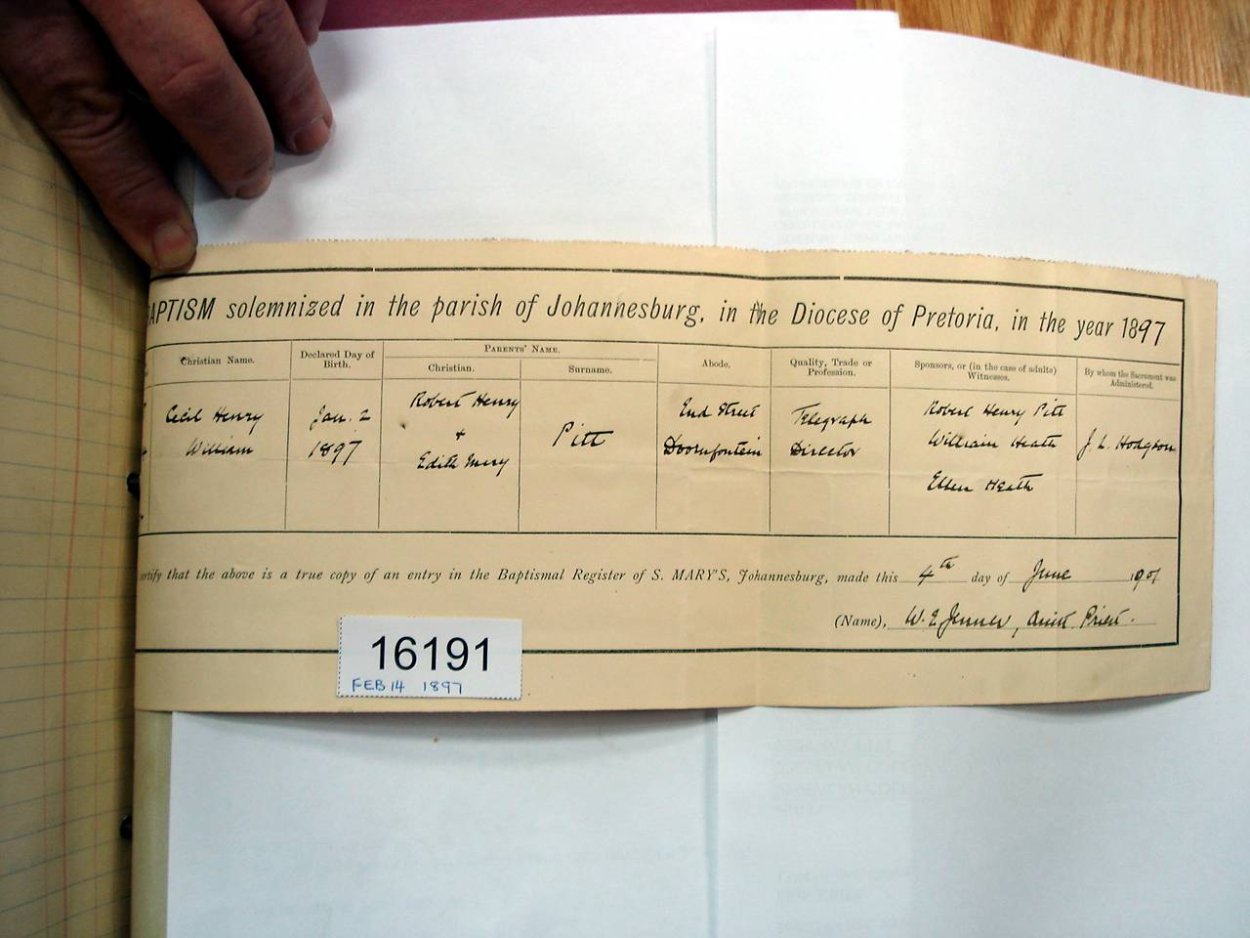 BAPTISM solemnized in the parish of Johannesburg, in the Diocese of Pretoria, in the year 1897
Christian Name.
Declared Day of Birth.
PARENTS' NAME.
Christian.
Surname.
Abode.
Quality, Trade or Profession.
Sponsors, or (in the case of adults) Witnesses.
By whom the Sacrament was Administered.
Cecil Henry
William
Jan. 2
1897
Robert Henry
+
Edith Mary
Pitt
End Street
Doornfontein
Telegraph
Director
Robert Henry Pitt
William Heath
Ellen Heath
J. L. Hodgson
ertify that the above is a true copy of an entry in the Baptismal Register of S. MARY'S, Johannesburg, made this 4th day of June 1901
(Name), W. E. Jenner, Priest.
16191
FEB 14 1897